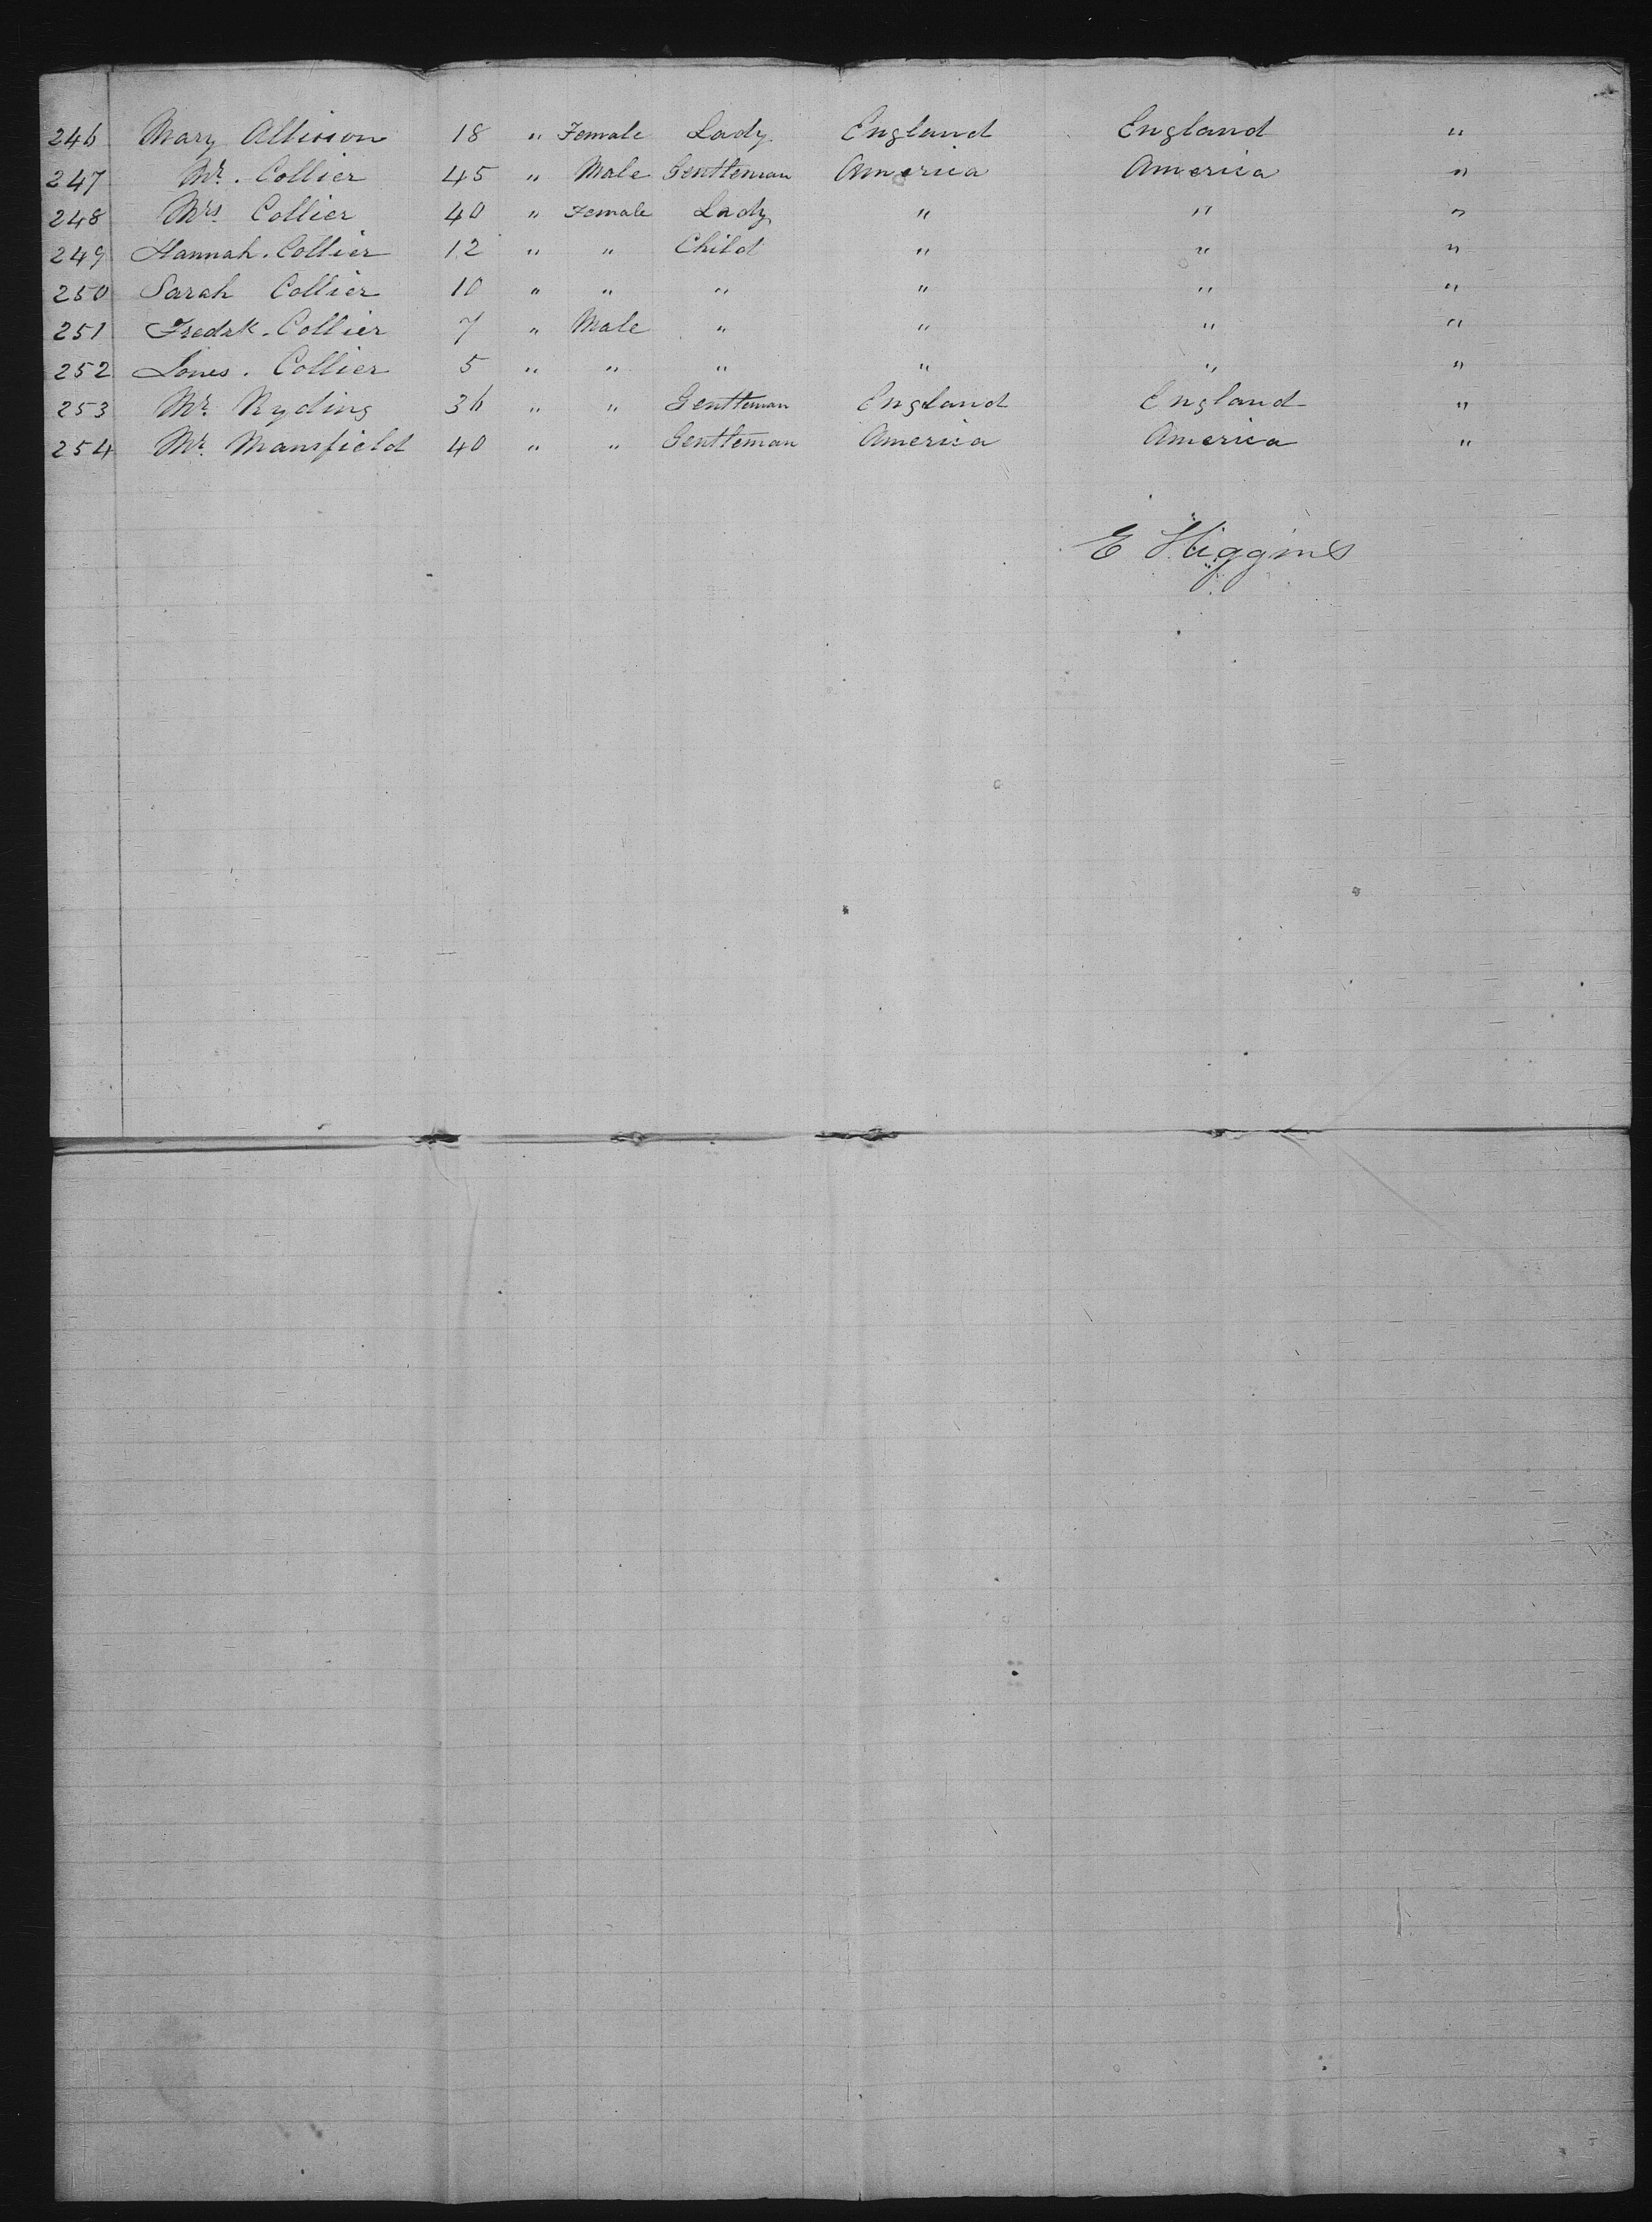 246 Mary Allison 18 " Female Lady England England "
247 Mr. Collier 45 " Male Gentleman America America "
248 Mrs Collier 40 " Female Lady " " "
249 Hannah. Collier 12 " " Child " " "
250 Sarah Collier 10 " " " " " "
251 Fredrk. Collier 7 " Male " " " "
252 Collier 5 " " " " " "
253 Mr. Ryding 36 " " Gentleman England England "
254 Mr. Mansfield 40 " " Gentleman America America "
E Higgins